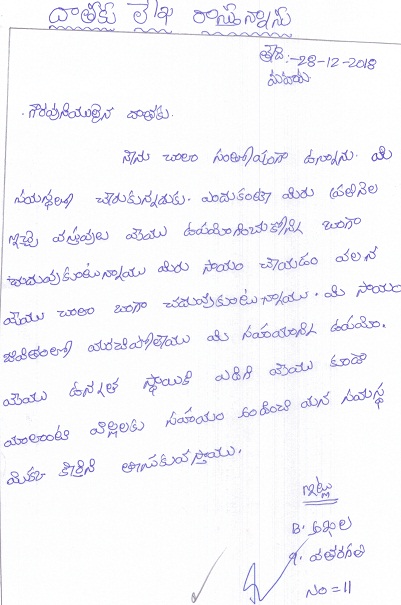 దాతకు లేఖ రాస్తున్నాను
తేది:-28-12-2018
గౌరవనీయులైన దాతకు.
నేను చాలా సంతోషంగా ఉన్నాను. మీ
సంస్థలో చేరుకున్నందుకు. ఎందుకంటే మీరు ప్రతినెల
ఇచ్చే వస్తువులు మేము ఉపయోగించుకోని బాగా
చదువుకుంటున్నాము మీరు సాయం చేయడం వలన
మేము చాలా బాగా చదువుకుంటున్నాము. మీ సాయం
జీవితంలో మరచిపోలేము మీ సహాయానికి
మేము ఉన్నత స్థాయికి ఎదిగి మేము కూడా
మాలాంటి పిల్లలకు సహాయం అందించి మన సంస్థ
కీర్తిని తీసుకువస్తాము.
ఇట్లు
B. అఖిల
9. వతరగతి
నం = 11